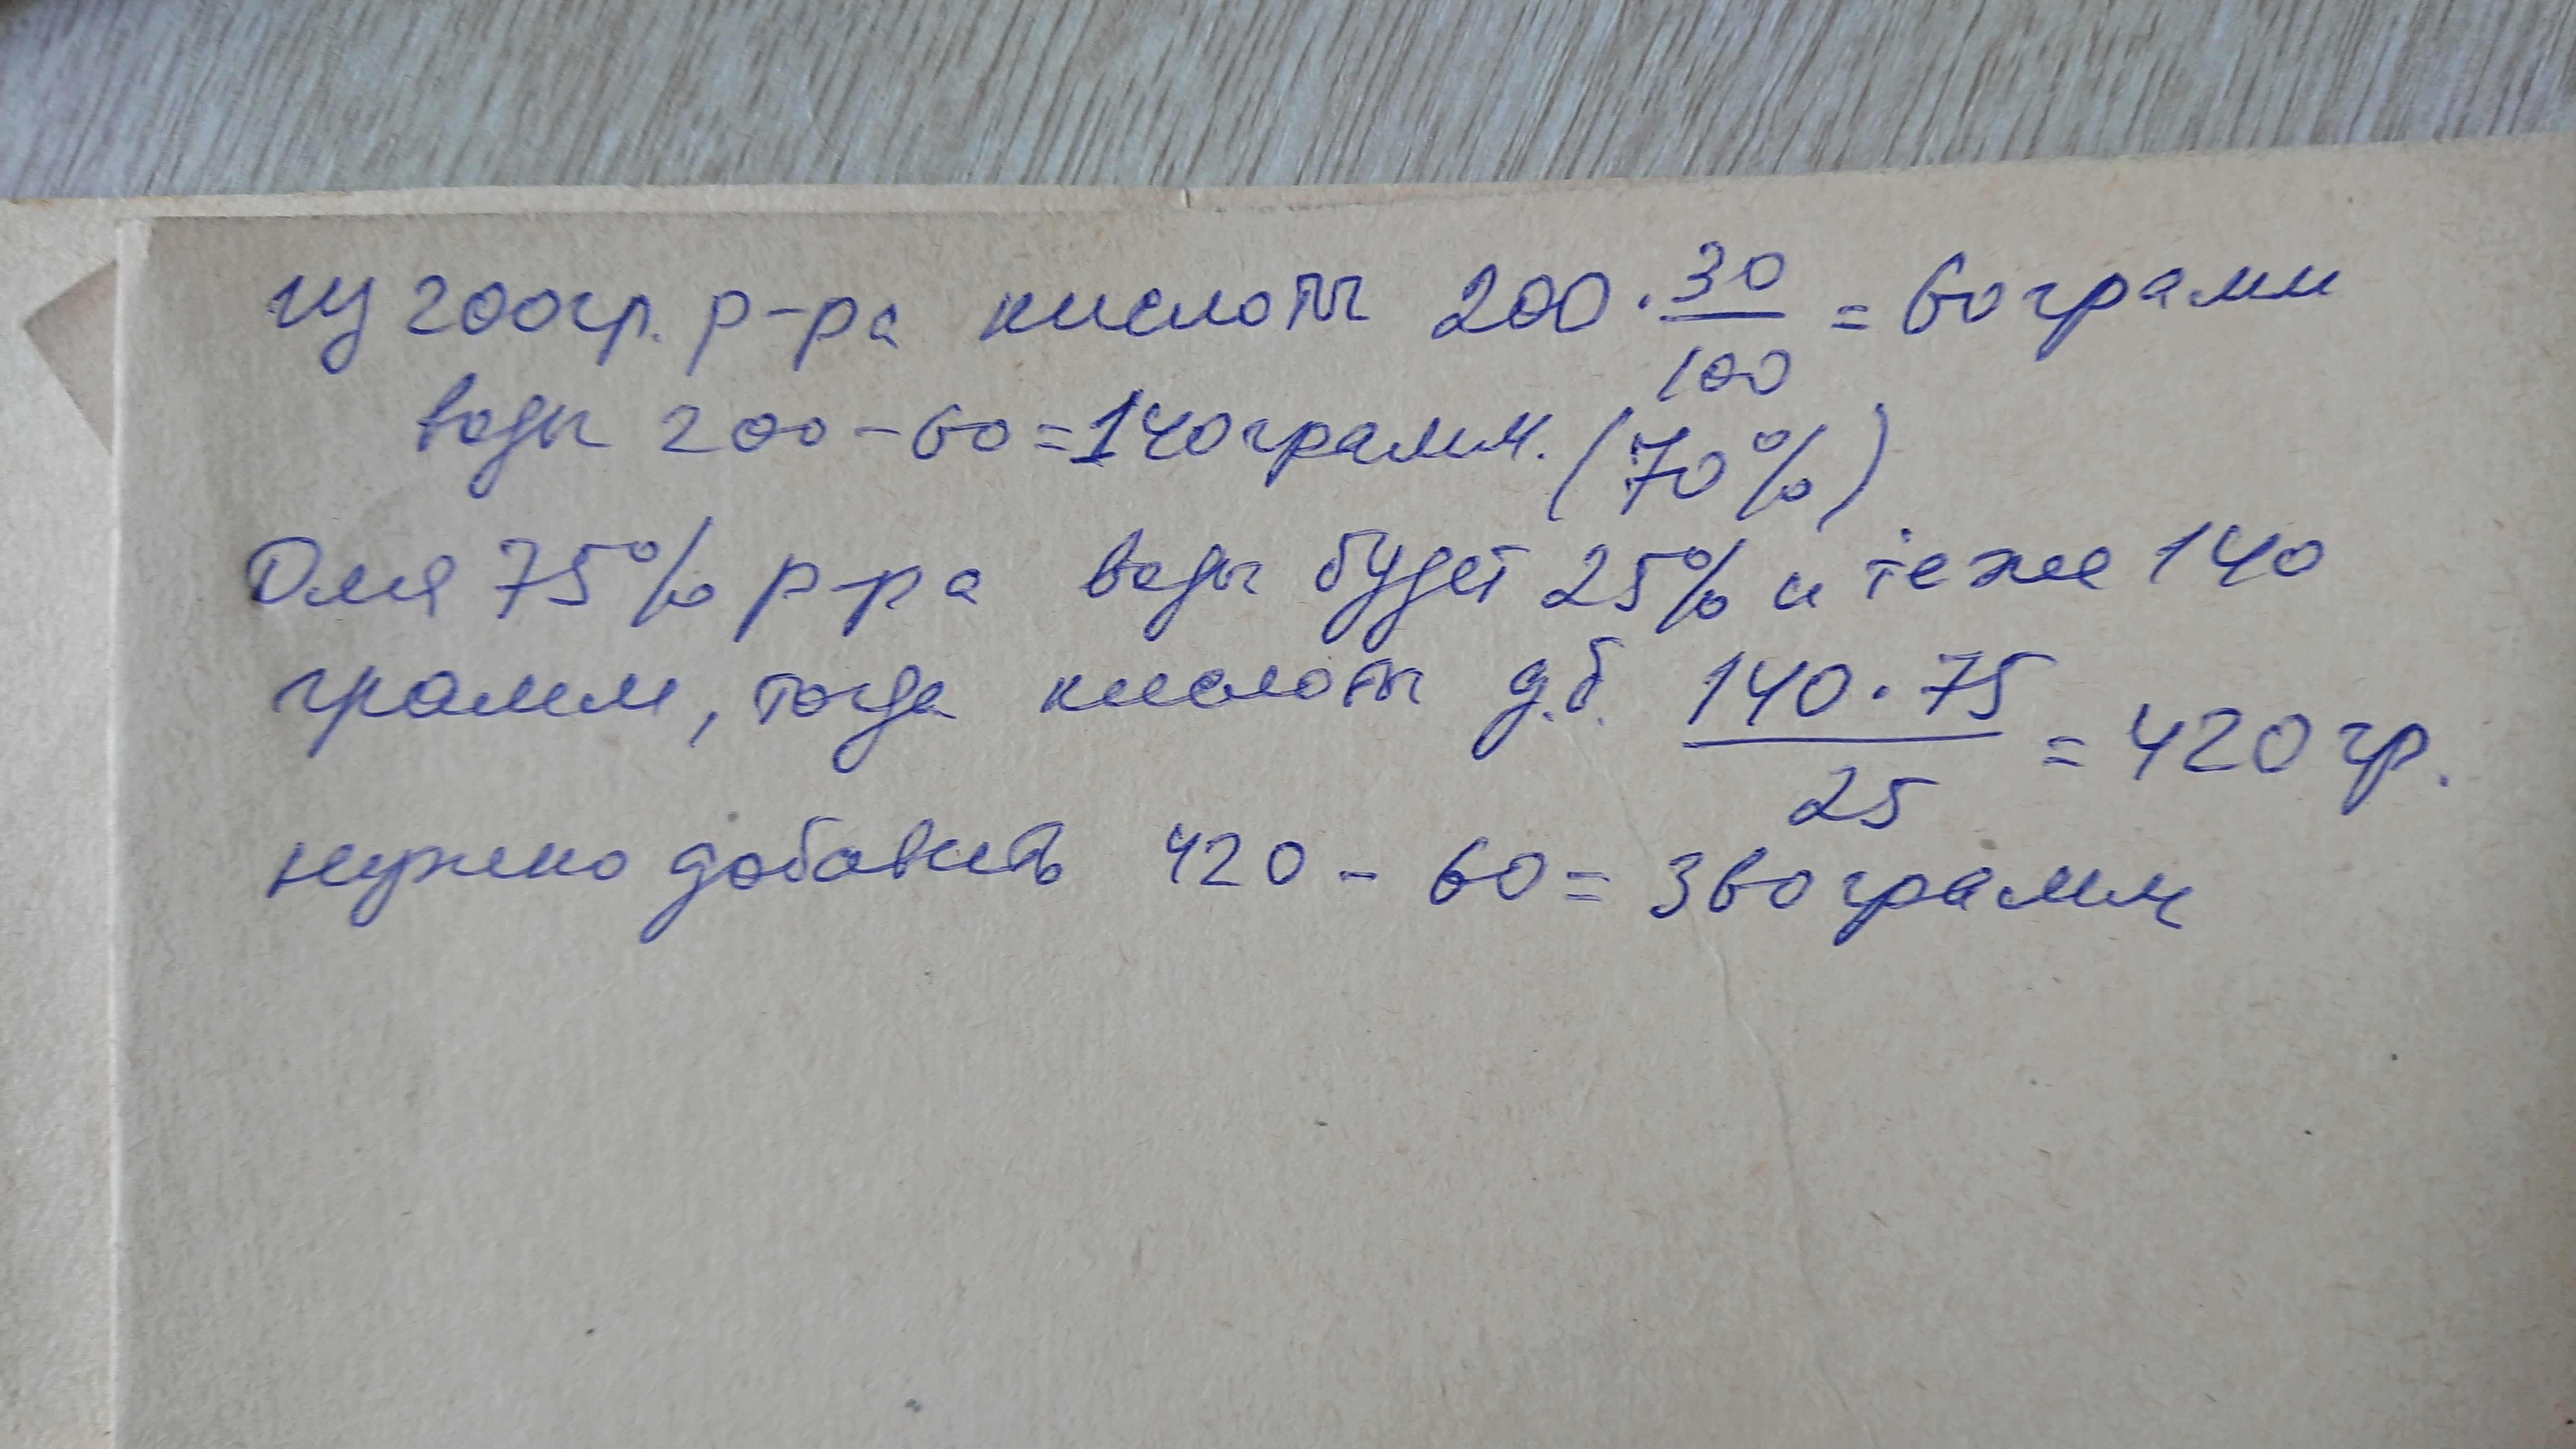 из 200гр. р-ра кислоты 200 · 30/100 = 60 грамм
воды 200 - 60 = 140 грамм. (70%)
Для 75% р-ра воды будет 25% и те же 140
грамм, тогда кислоты д.б. 140 · 75/25 = 420 гр.
нужно добавить 420 - 60 = 360 грамм